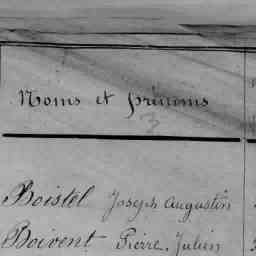 Noms et prénoms
3
Boistel Joseph Augustin
Boivent Pierre, Julien